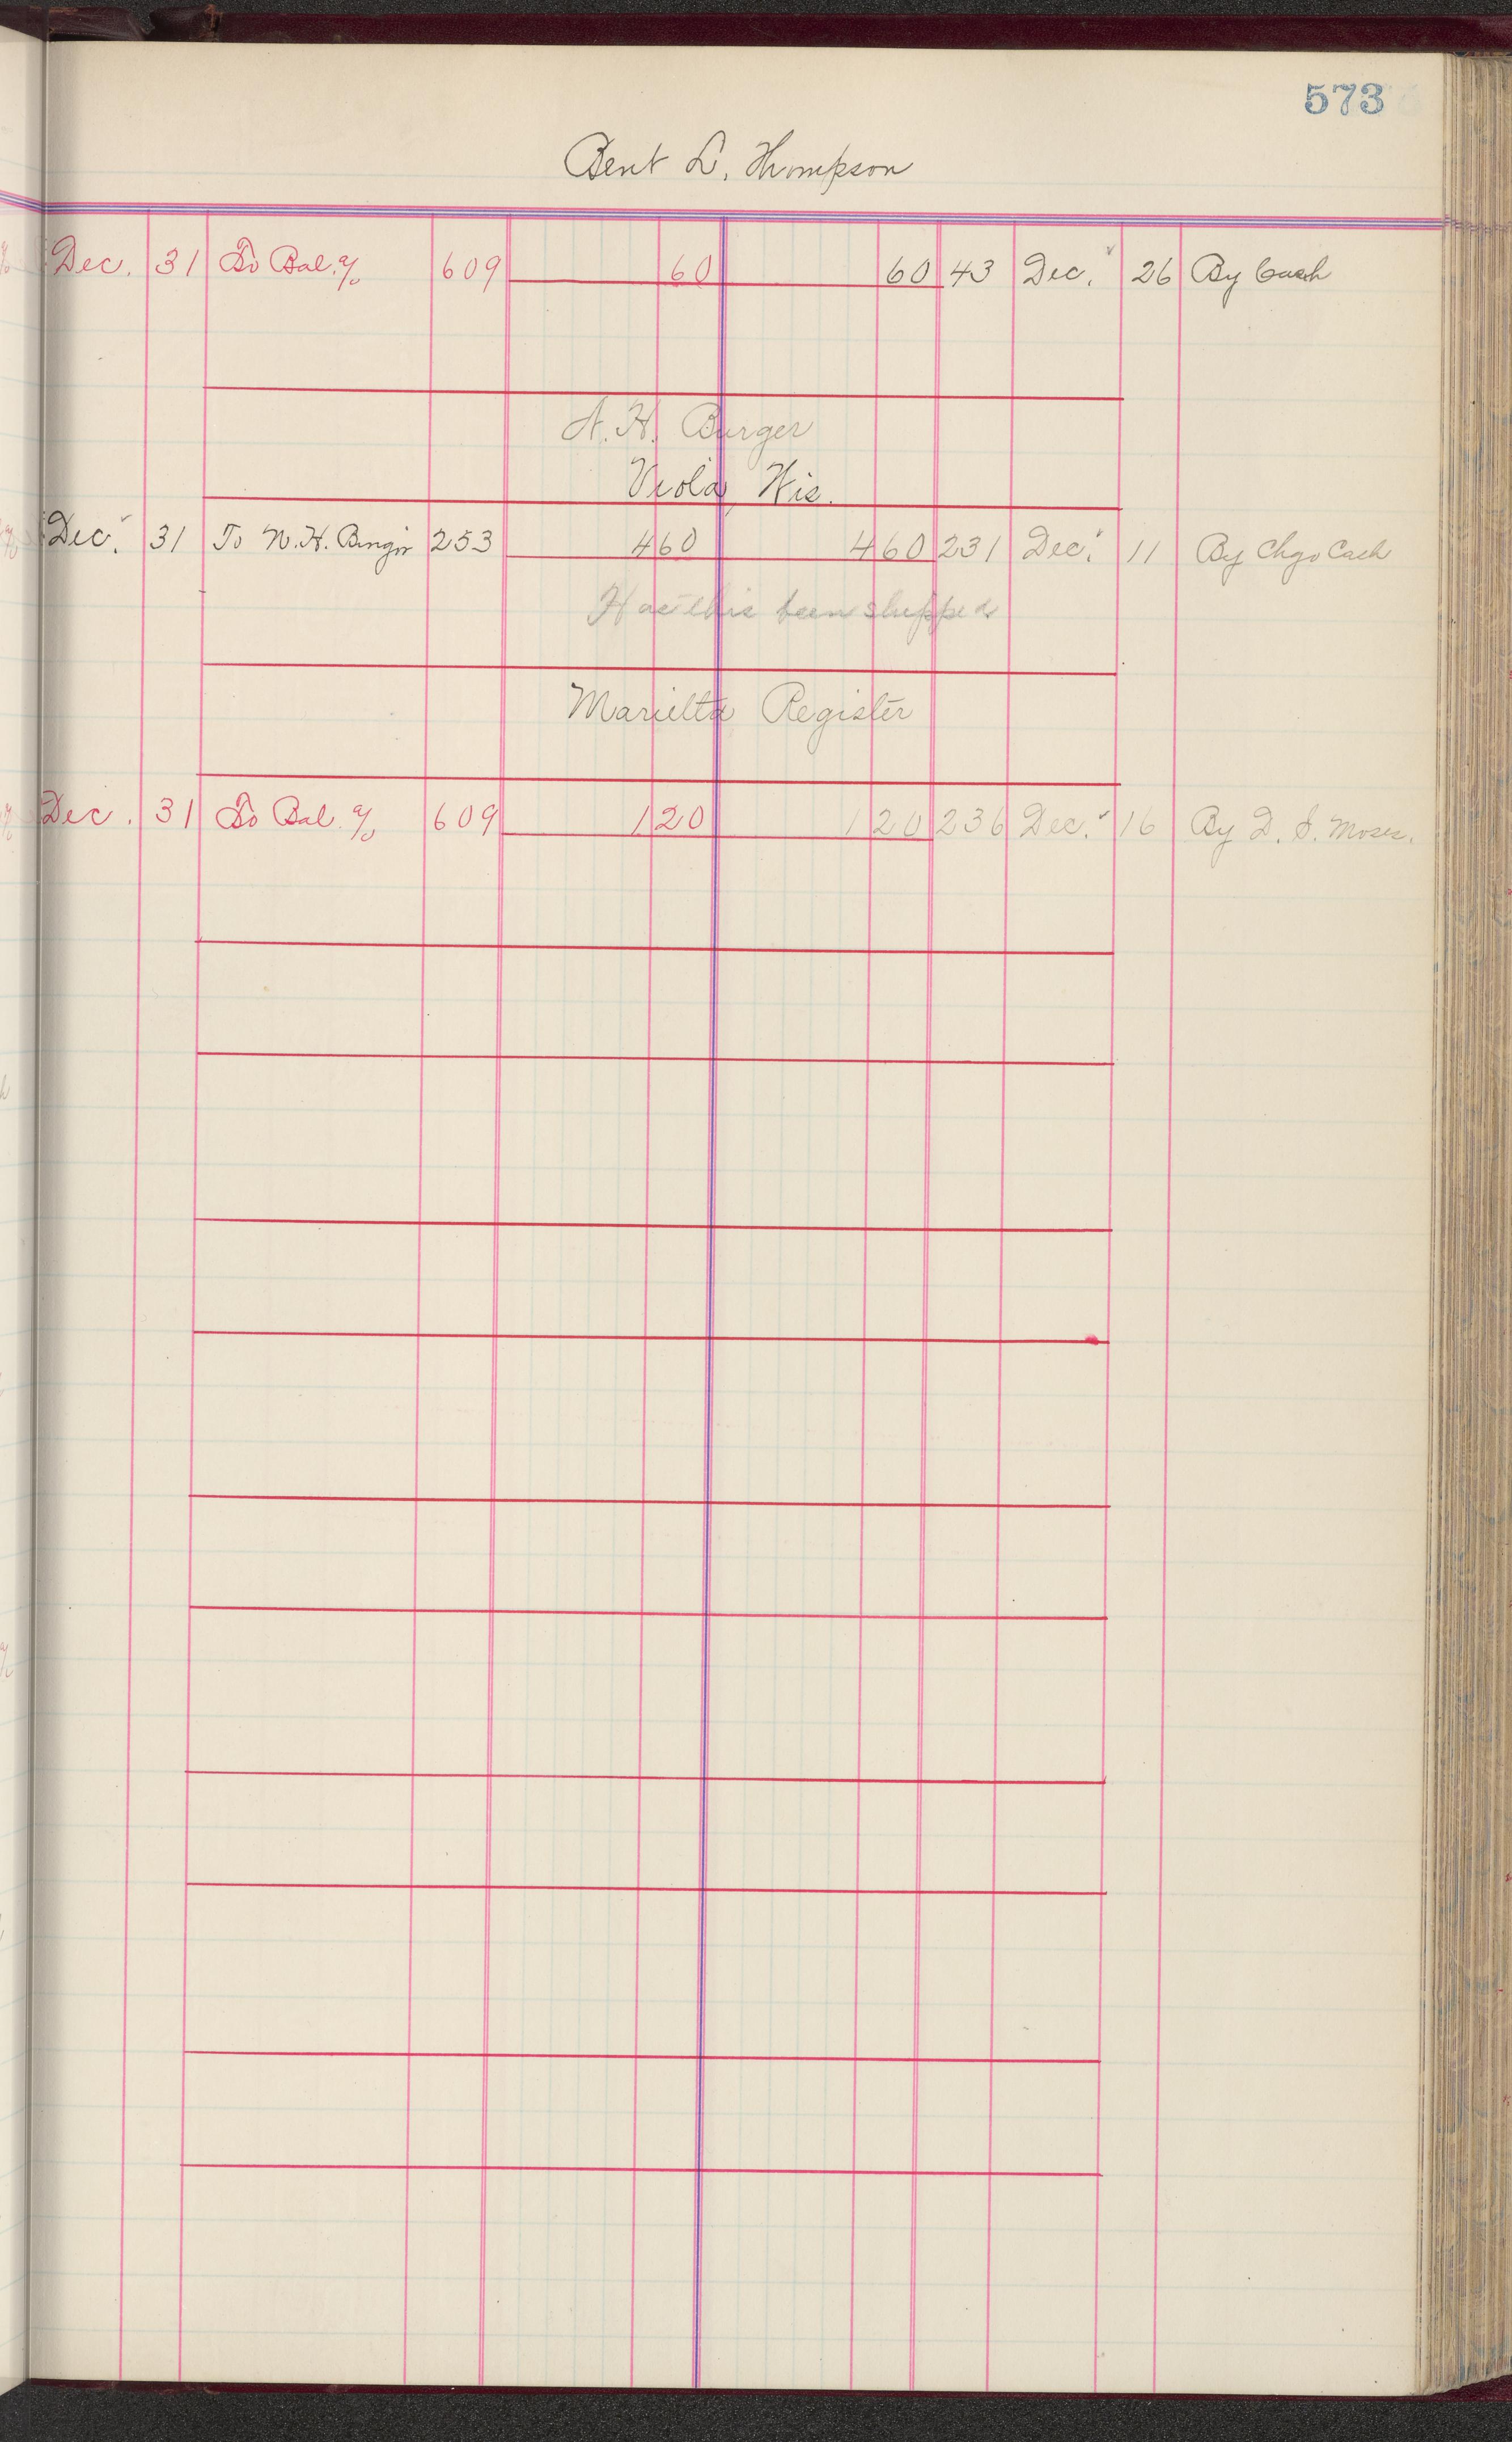 573
Bent L. Thompson
Dec. 31 To Bal. % 609 60 60 43 Dec. 26 By Cash
A. H. Burger
Viola, Wis.
Dec. 31 To N. H. 253 4 60 4 60 231 Dec. 11 By Chgo Cash
Has this been shipped
Marietta Register
Dec. 31 To Bal. % 609 1 20 1 20 236 Dec. 16 By D. S. Moses.